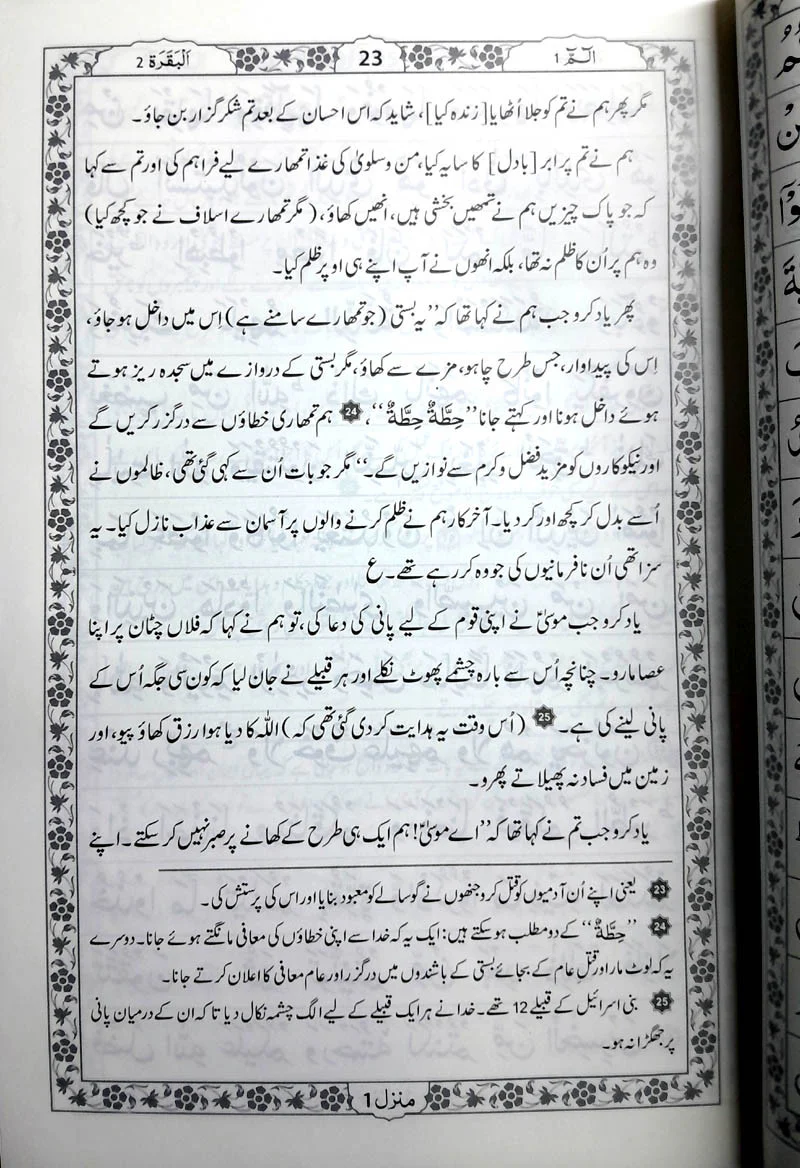 الٓمّٓ 1
23
اَلْبَقَرَة 2
مگر پھر ہم نے تم کو جلا اُٹھایا [زندہ کیا]، شاید کہ اس احسان کے بعد تم شکر گزار بن جاؤ۔
ہم نے تم پر ابر [بادل] کا سایہ کیا، من و سلویٰ کی غذا تمھارے لیے فراہم کی اور تم سے کہا
کہ جو پاک چیزیں ہم نے تمھیں بخشی ہیں، انھیں کھاؤ، (مگر تمھارے اسلاف نے جو کچھ کیا)
وہ ہم پر اُن کا ظلم نہ تھا، بلکہ انھوں نے آپ اپنے ہی اوپر ظلم کیا۔
پھر یاد کرو جب ہم نے کہا تھا کہ ”یہ بستی (جو تمھارے سامنے ہے) اِس میں داخل ہو جاؤ،
اِس کی پیداوار، جس طرح چاہو، مزے سے کھاؤ، مگر بستی کے دروازے میں سجدہ ریز ہوتے
ہوئے داخل ہونا اور کہتے جانا ”حِطَّةٌ حِطَّةٌ“، 24 ہم تمھاری خطاؤں سے درگزر کریں گے
اور نیکوکاروں کو مزید فضل و کرم سے نوازیں گے۔“ مگر جو بات اُن سے کہی گئی تھی، ظالموں نے
اُسے بدل کر کچھ اور کر دیا۔ آخرکار ہم نے ظلم کرنے والوں پر آسمان سے عذاب نازل کیا۔ یہ
سزا تھی اُن نافرمانیوں کی جو وہ کر رہے تھے۔ ع
یاد کرو جب موسیٰؑ نے اپنی قوم کے لیے پانی کی دعا کی، تو ہم نے کہا کہ فلاں چٹان پر اپنا
عصا مارو۔ چنانچہ اُس سے بارہ چشمے پھوٹ نکلے اور ہر قبیلے نے جان لیا کہ کون سی جگہ اُس کے
پانی لینے کی ہے۔ 25 (اُس وقت یہ ہدایت کر دی گئی تھی کہ) اللہ کا دیا ہوا رزق کھاؤ پیو، اور
زمین میں فساد نہ پھیلاتے پھرو۔
یاد کرو جب تم نے کہا تھا کہ ”اے موسیٰؑ! ہم ایک ہی طرح کے کھانے پر صبر نہیں کر سکتے۔ اپنے
23 یعنی اپنے اُن آدمیوں کو قتل کرو جنھوں نے گوسالے کو معبود بنایا اور اس کی پرستش کی۔
24 ”حِطَّةٌ“ کے دو مطلب ہو سکتے ہیں: ایک یہ کہ خدا سے اپنی خطاؤں کی معافی مانگتے ہوئے جانا۔ دوسرے
یہ کہ لوٹ مار اور قتلِ عام کے بجائے بستی کے باشندوں میں درگزر اور عام معافی کا اعلان کرتے جانا۔
25 بنی اسرائیل کے قبیلے 12 تھے۔ خدا نے ہر ایک قبیلے کے لیے الگ چشمہ نکال دیا تاکہ ان کے درمیان پانی
پر جھگڑا نہ ہو۔
منزل 1